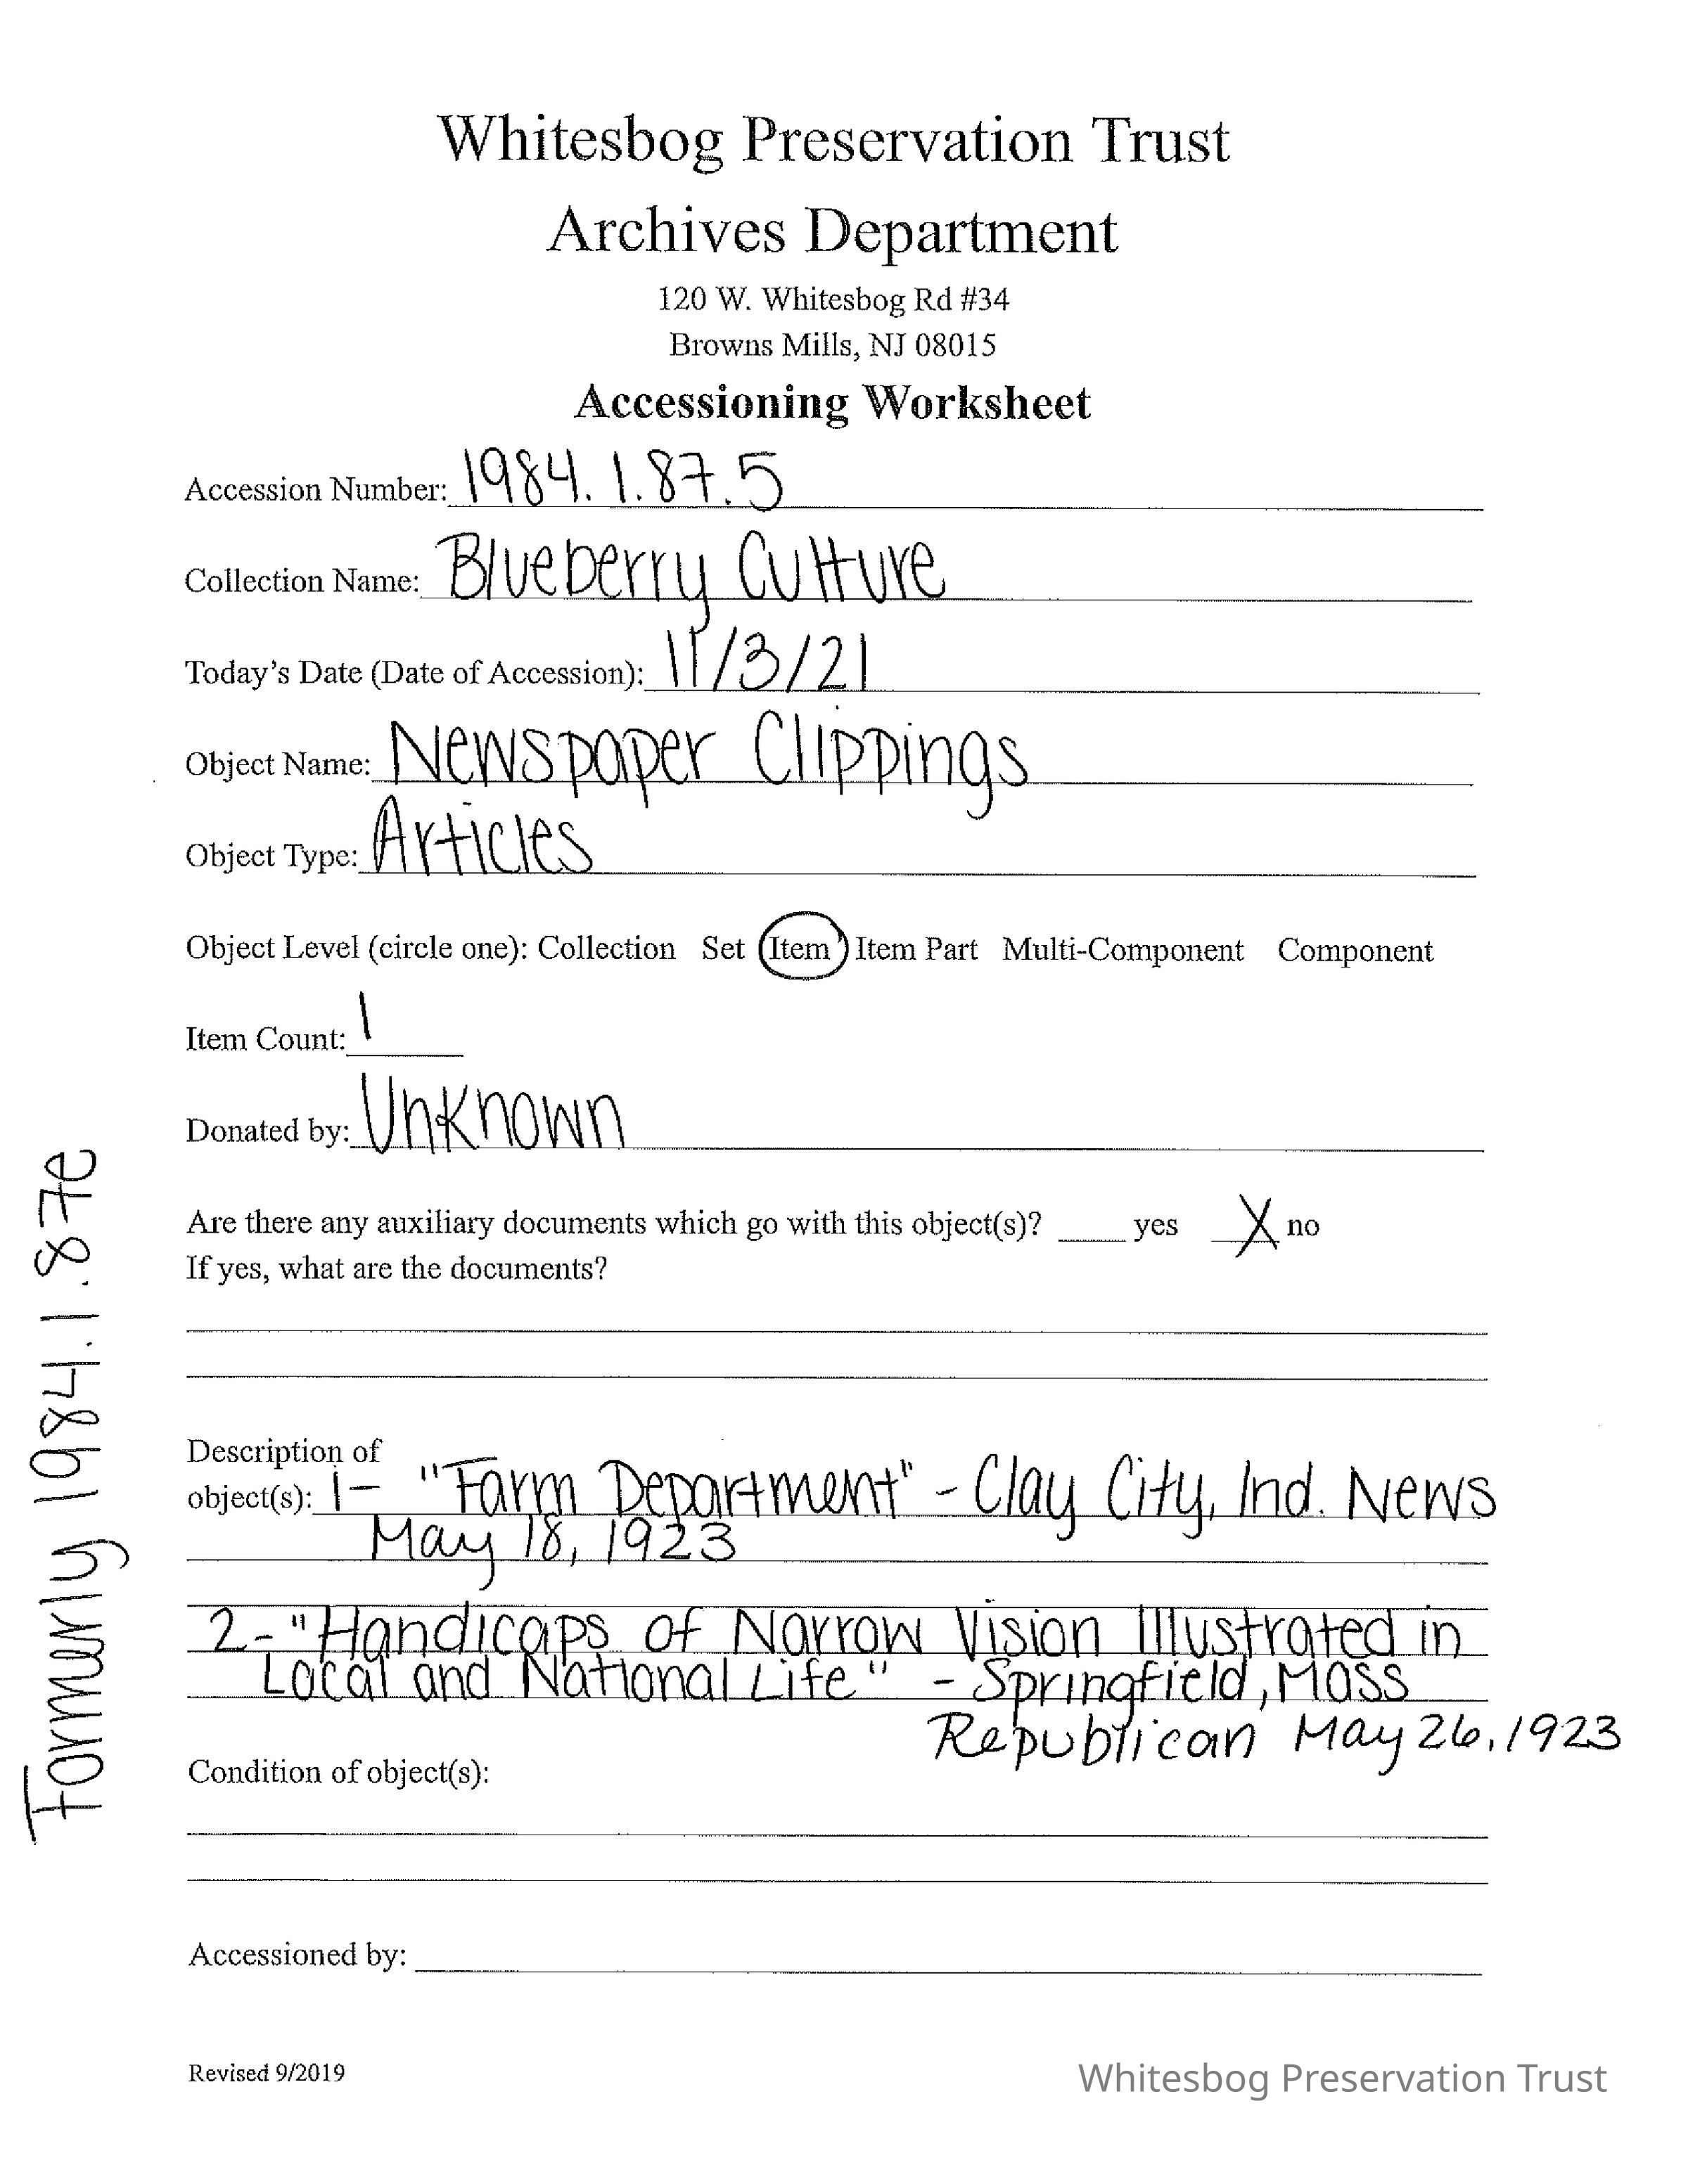 Whitesbog Preservation Trust
Archives Department
120 W. Whitesbog Rd #34
Browns Mills, NJ 08015
Accessioning Worksheet
Accession Number: 1984.1.87.5
Collection Name: Blueberry Culture
Today's Date (Date of Accession): 11/3/21
Object Name: Newspaper Clippings
Object Type: Articles
Object Level (circle one): Collection Set Item Item Part Multi-Component Component
Item Count: 1
Donated by: Unknown
Are there any auxiliary documents which go with this object(s)? ____ yes X no
If yes, what are the documents?
Description of
object(s): 1- "Farm Department" - Clay City, Ind. News
May 18, 1923
2- "Handicaps of Narrow Vision Illustrated in
Local and National Life" - Springfield, Mass
Republican May 26, 1923
Condition of object(s):
Accessioned by:
Revised 9/2019
Whitesbog Preservation Trust
Formerly 1984.1.87e